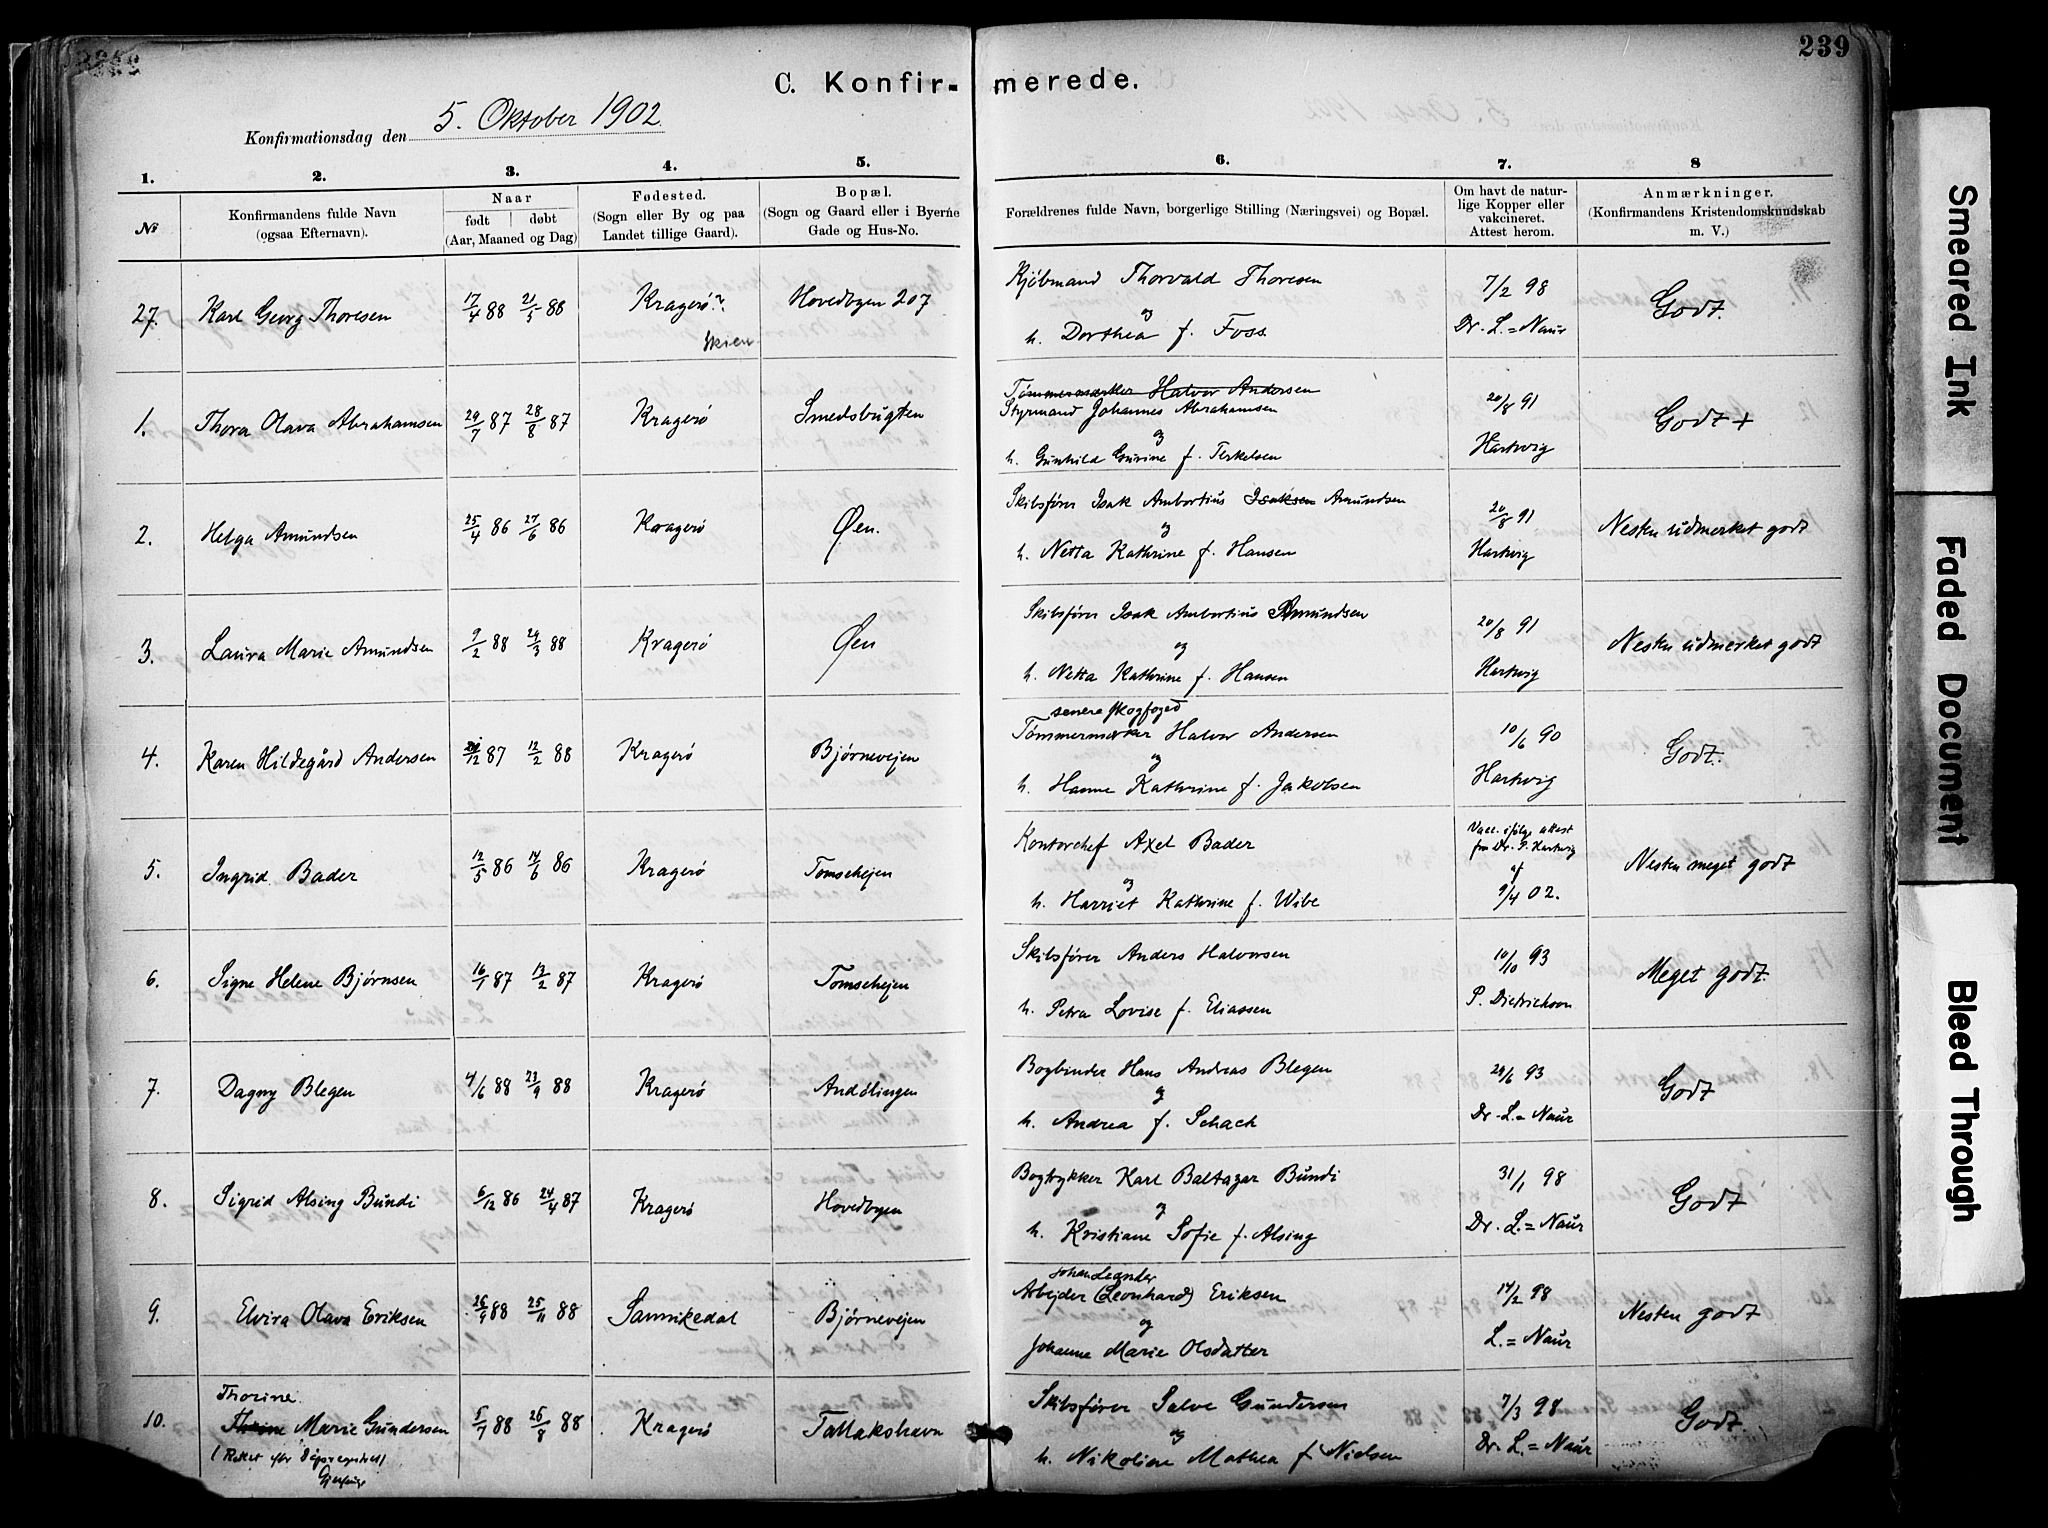 239
C. Konfirmerede.
Konfirmationsdag den 5. Oktober 1902.
1. 2. 3. 4. 5. 6. 7. 8
No
Konfirmandens fulde Navn
(ogsaa Efternavn).
Naar
født | døbt
(Aar, Maaned og Dag)
Fødested.
(Sogn eller By og paa
Landet tillige Gaard).
Bopæl.
(Sogn og Gaard eller i Byerne
Gade og Hus-No.
Forældrenes fulde Navn, borgerlige Stilling (Næringsvei) og Bopæl.
Om havt de natur-
lige Kopper eller
vakcineret.
Attest herom.
Anmærkninger.
(Konfirmandens Kristendomskundskab
m. V.)
27. Karl Georg Thoresen 17/4 88 21/5 88 Kragerø? Skien Hovedbyen 207
Kjøbmand Thorvald Thoresen
og
h. Dorthea f. Foss.
7/2 98
Dr. L.=Naur
Godt.
1. Thora Olava Abrahamsen 29/7 87 28/8 87 Kragerø Smedsbugten
Tømmermærker Halvor Andersen
Styrmand Johannes Abrahamsen
og
h. Gunhild Gurine f. Terkelsen
20/8 91
Hartvig
Godt +
2. Helga Amundsen 25/4 86 27/6 86 Kragerø Øen.
Skibsfører Isak Ambortius Isaksen Amundsen
og
h. Netta Kathrine f. Hansen
20/8 91
Hartvig
Nesten udmerket godt
3. Laura Marie Amundsen 9/2 88 29/3 88 Kragerø Øen
Skibsfører Isak Ambortius Amundsen
og
h. Netta Kathrine f. Hansen
20/8 91
Hartvig
Nesten udmerket godt
4. Karen Hildegård Andersen /12 87 12/2 88 Kragerø Bjørnevejen
senere skogfoged
Tømmermerker Halvor Andersen
og
h. Hanne Kathrine f. Jakobsen
10/6 90
Hartvig
Godt.
5. Ingrid Bader 12/5 86 14/6 86 Kragerø Tomsehejen
Kontorchef Axel Bader
og
h. Harriet Kathrine f. Wibe
Vacc. ifølge attest
fra Dr. P. Hartvig
af
9/4 02.
Nesten meget godt
6. Signe Helene Bjørnsen 16/1 87 13/2 87 Kragerø Tomsehejen
Skibsfører Anders Halvorsen
h. Petra Lovise f. Eliassen
10/10 93
P. Dietrichson
Meget godt.
7. Dagny Blegen 4/6 88 23/9 88 Kragerø Andølingen
Bogbinder Hans Andreas Blegen
og
h. Andrea f. Schach
29/6 93
Dr. L.=Naur
Godt
8. Sigrid Alsing Bundi 6/12 86 24/4 87 Kragerø Hovedbyen
Bogtrykker Karl Baltazar Bundi
og
h. Kristiane Sofie f. Alsing
31/1 98
Dr. L.=Naur
Godt
9. Elvira Olava Eriksen 26/9 88 25/11 88 Sannikedal Bjørnevejen
Johan Leander
Arbejder (Leonhard) Eriksen
og
Johanne Marie Olsdatter
14/2 98
L.=Naur
Nesten godt
Thorine
10. Marie Gundersen 5/7 88 26/8 88 Kragerø Tallakshavn
(Rettet efter dåpsregistret)
Skibsfører Salve Gundersen
og
h. Nikoline Mathea f. Nielsen
7/3 98
Dr. L.=Naur
Godt.
Smeared Ink
Faded Document
Bleed Through